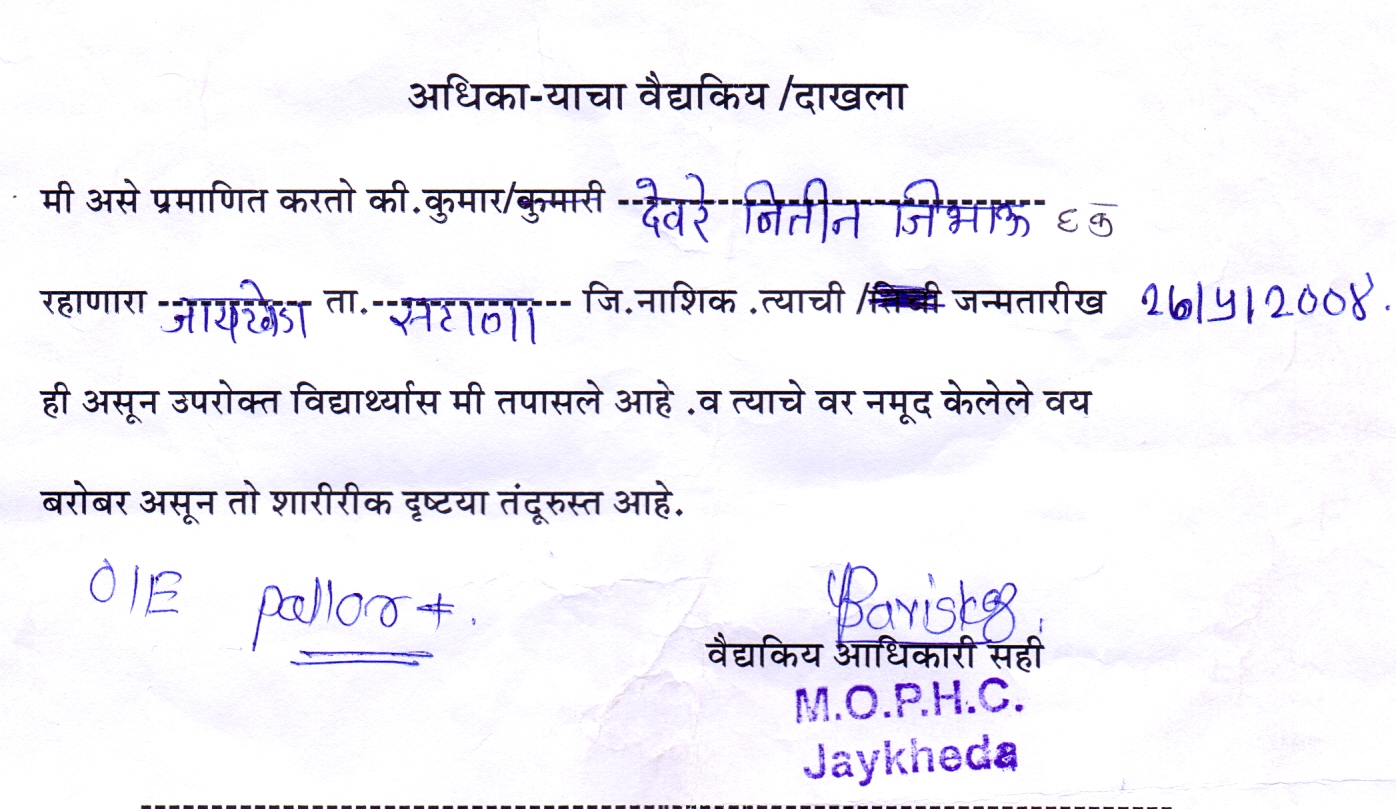 अधिका-याचा वैद्यकिय /दाखला
मी असे प्रमाणित करतो की.कुमार/कुमारी देवरे नितीन जिभाऊ
रहाणारा जायखेडा ता. सटाणा जि.नाशिक .त्याची / जन्मतारीख 26/५/200४.
ही असून उपरोक्त विद्यार्थ्यास मी तपासले आहे .व त्याचे वर नमूद केलेले वय
बरोबर असून तो शारीरीक दृष्टया तंदूरुस्त आहे.
O/E pallor +.
वैद्यकिय आधिकारी सही
M.O.P.H.C.
Jaykheda